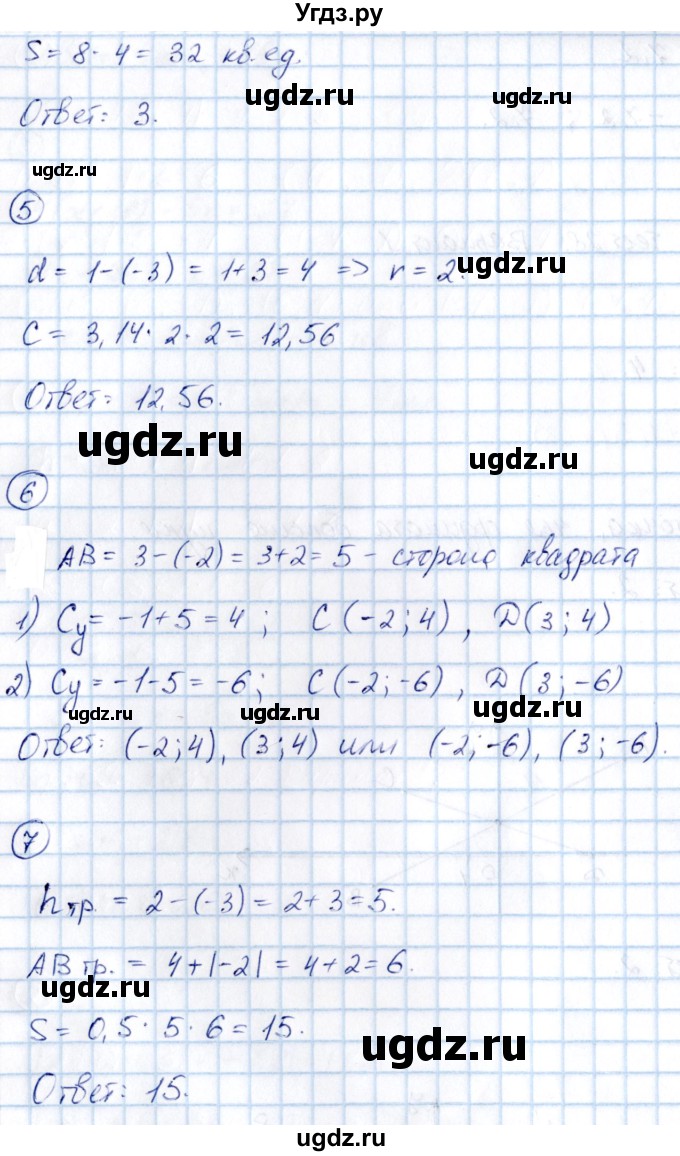 Угдз.ру
S = 8 · 4 = 32 кв. ед.
ugdz.ru
Ответ: 3.
ugdz.ru
5
d = 1 - (-3) = 1 + 3 = 4 => r = 2.
ugdz.ru
C = 3,14 · 2 · 2 = 12,56
Ответ: 12,56.
ugdz.ru
ugdz.ru
6
AB = 3 - (-2) = 3 + 2 = 5 - сторона квадрата
1) Cy = -1 + 5 = 4 ; C (-2; 4) , D (3 ; 4)
2) Cy = -1 - 5 = -6; C (-2; -6) , D (3 ; -6)
ugdz.ru
ugdz.ru
ugdz.ru
Ответ: (-2; 4), (3 ; 4) или (-2; -6), (3 ; -6).
7
hтр. = 2 - (-3) = 2 + 3 = 5.
AB тр. = 4 + |-2| = 4 + 2 = 6.
ugdz.ru
S = 0,5 · 5 · 6 = 15.
ugdz.ru
Ответ: 15.
ugdz.ru